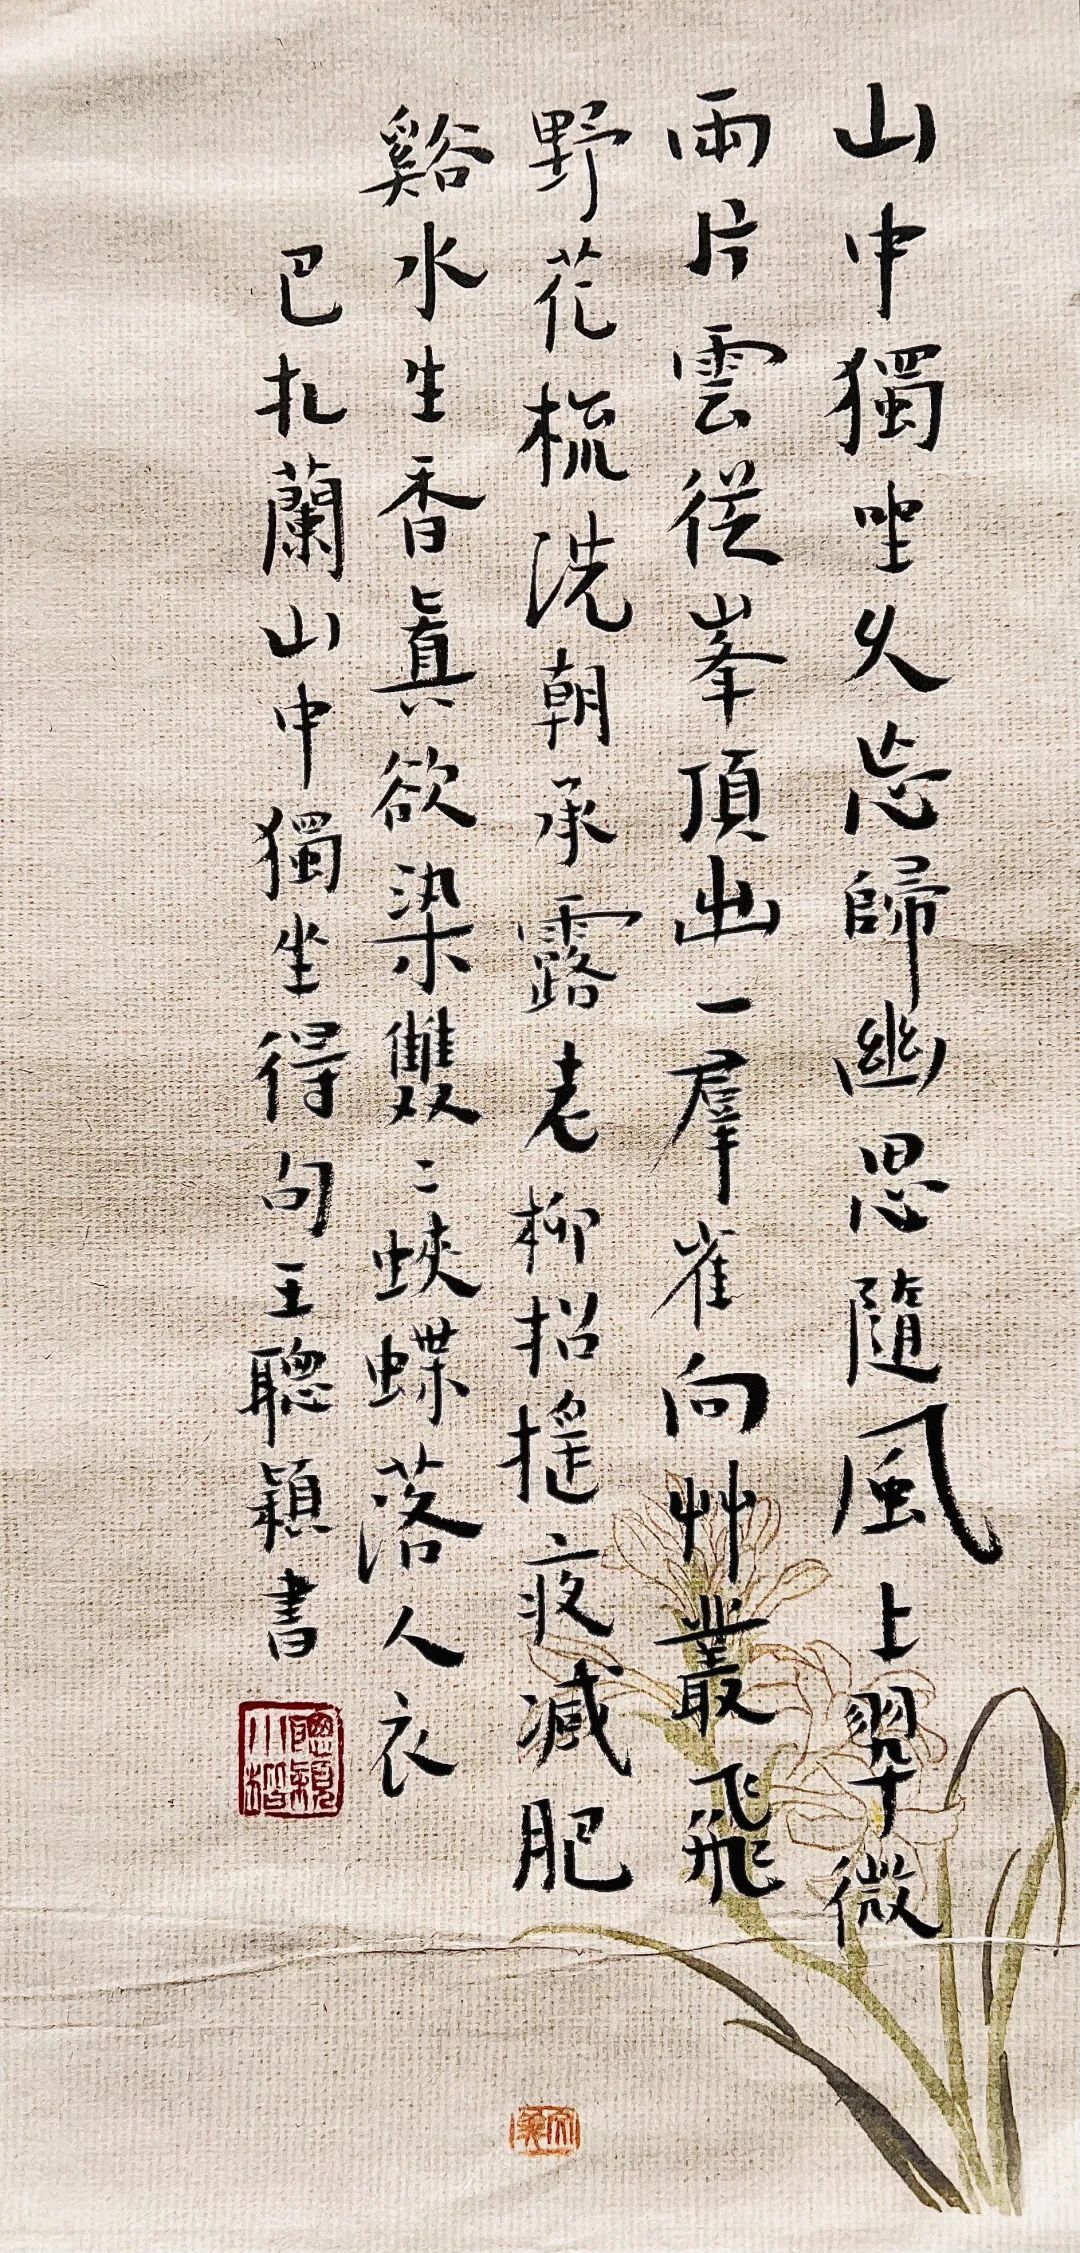 山中獨坐久忘歸幽思隨風上翠微
兩片雲從峯頂出一羣雀向艸叢飛
野花梳洗朝承露老柳招摇夜減肥
谿水生香眞欲染雙〻蛺蝶落人衣
巴扎蘭山中獨坐得句王聰穎書
聰穎小楷